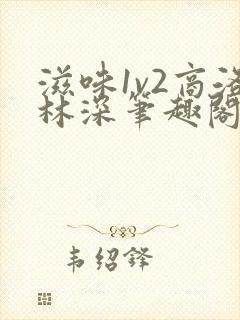 滋味1v2高洛
林深笔趣阁
韦绍铎